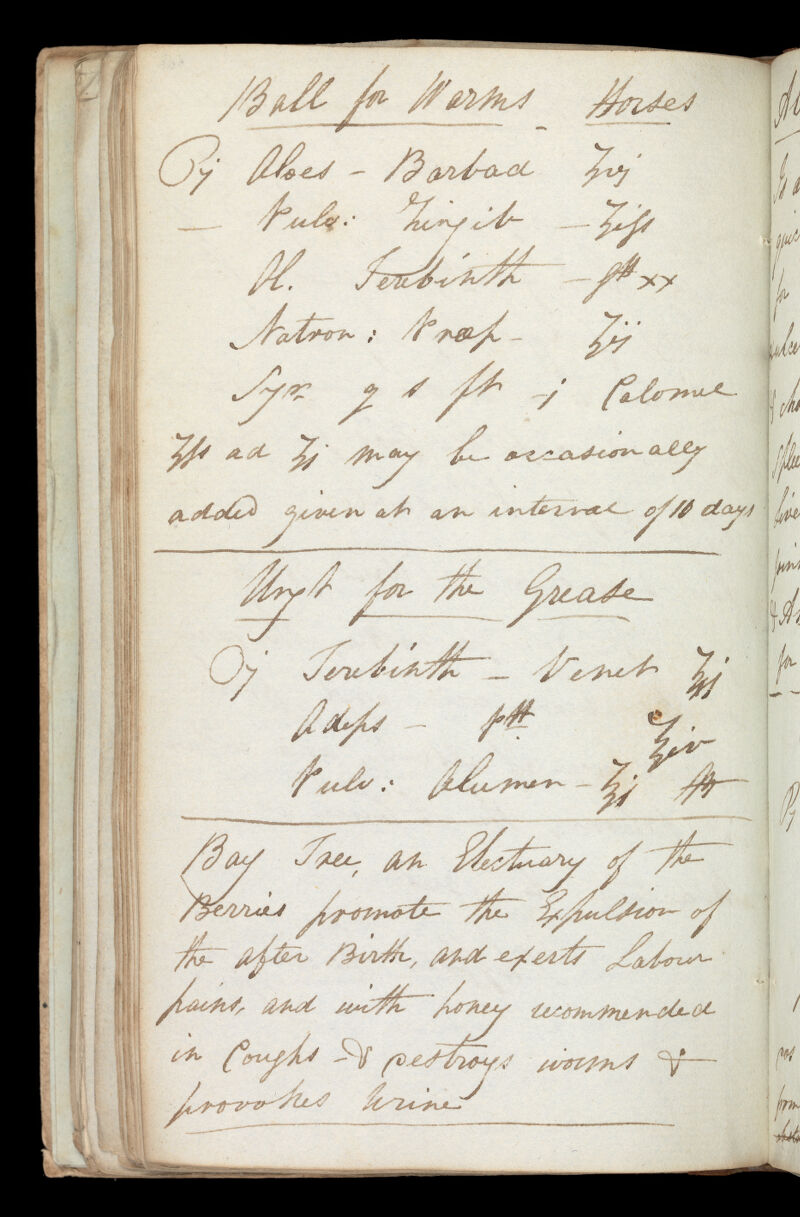 Ball for Worms - Horses
℞j Aloes - Barbad ʒvj
- Pulv: Zingib - ʒiſs
Ol. Terebinth - gtt xx
Natron: Præp - ʒij
Syr. q s ft - j Calomel
ʒſs ad ʒj may be occasionally
added given at an interval of 10 days
Ungt for the Grease
℞j Terebinth - Venet ℥j
Adeps - ptt ℥iv
Pulv: Alumen - ℥j ft
Bay Tree, an Electuary of the
Berries promote the Expulsion of
the after Birth, and exerts Labour
pains, and with honey recommended
in Coughs - & destroys worms &
provokes Urine